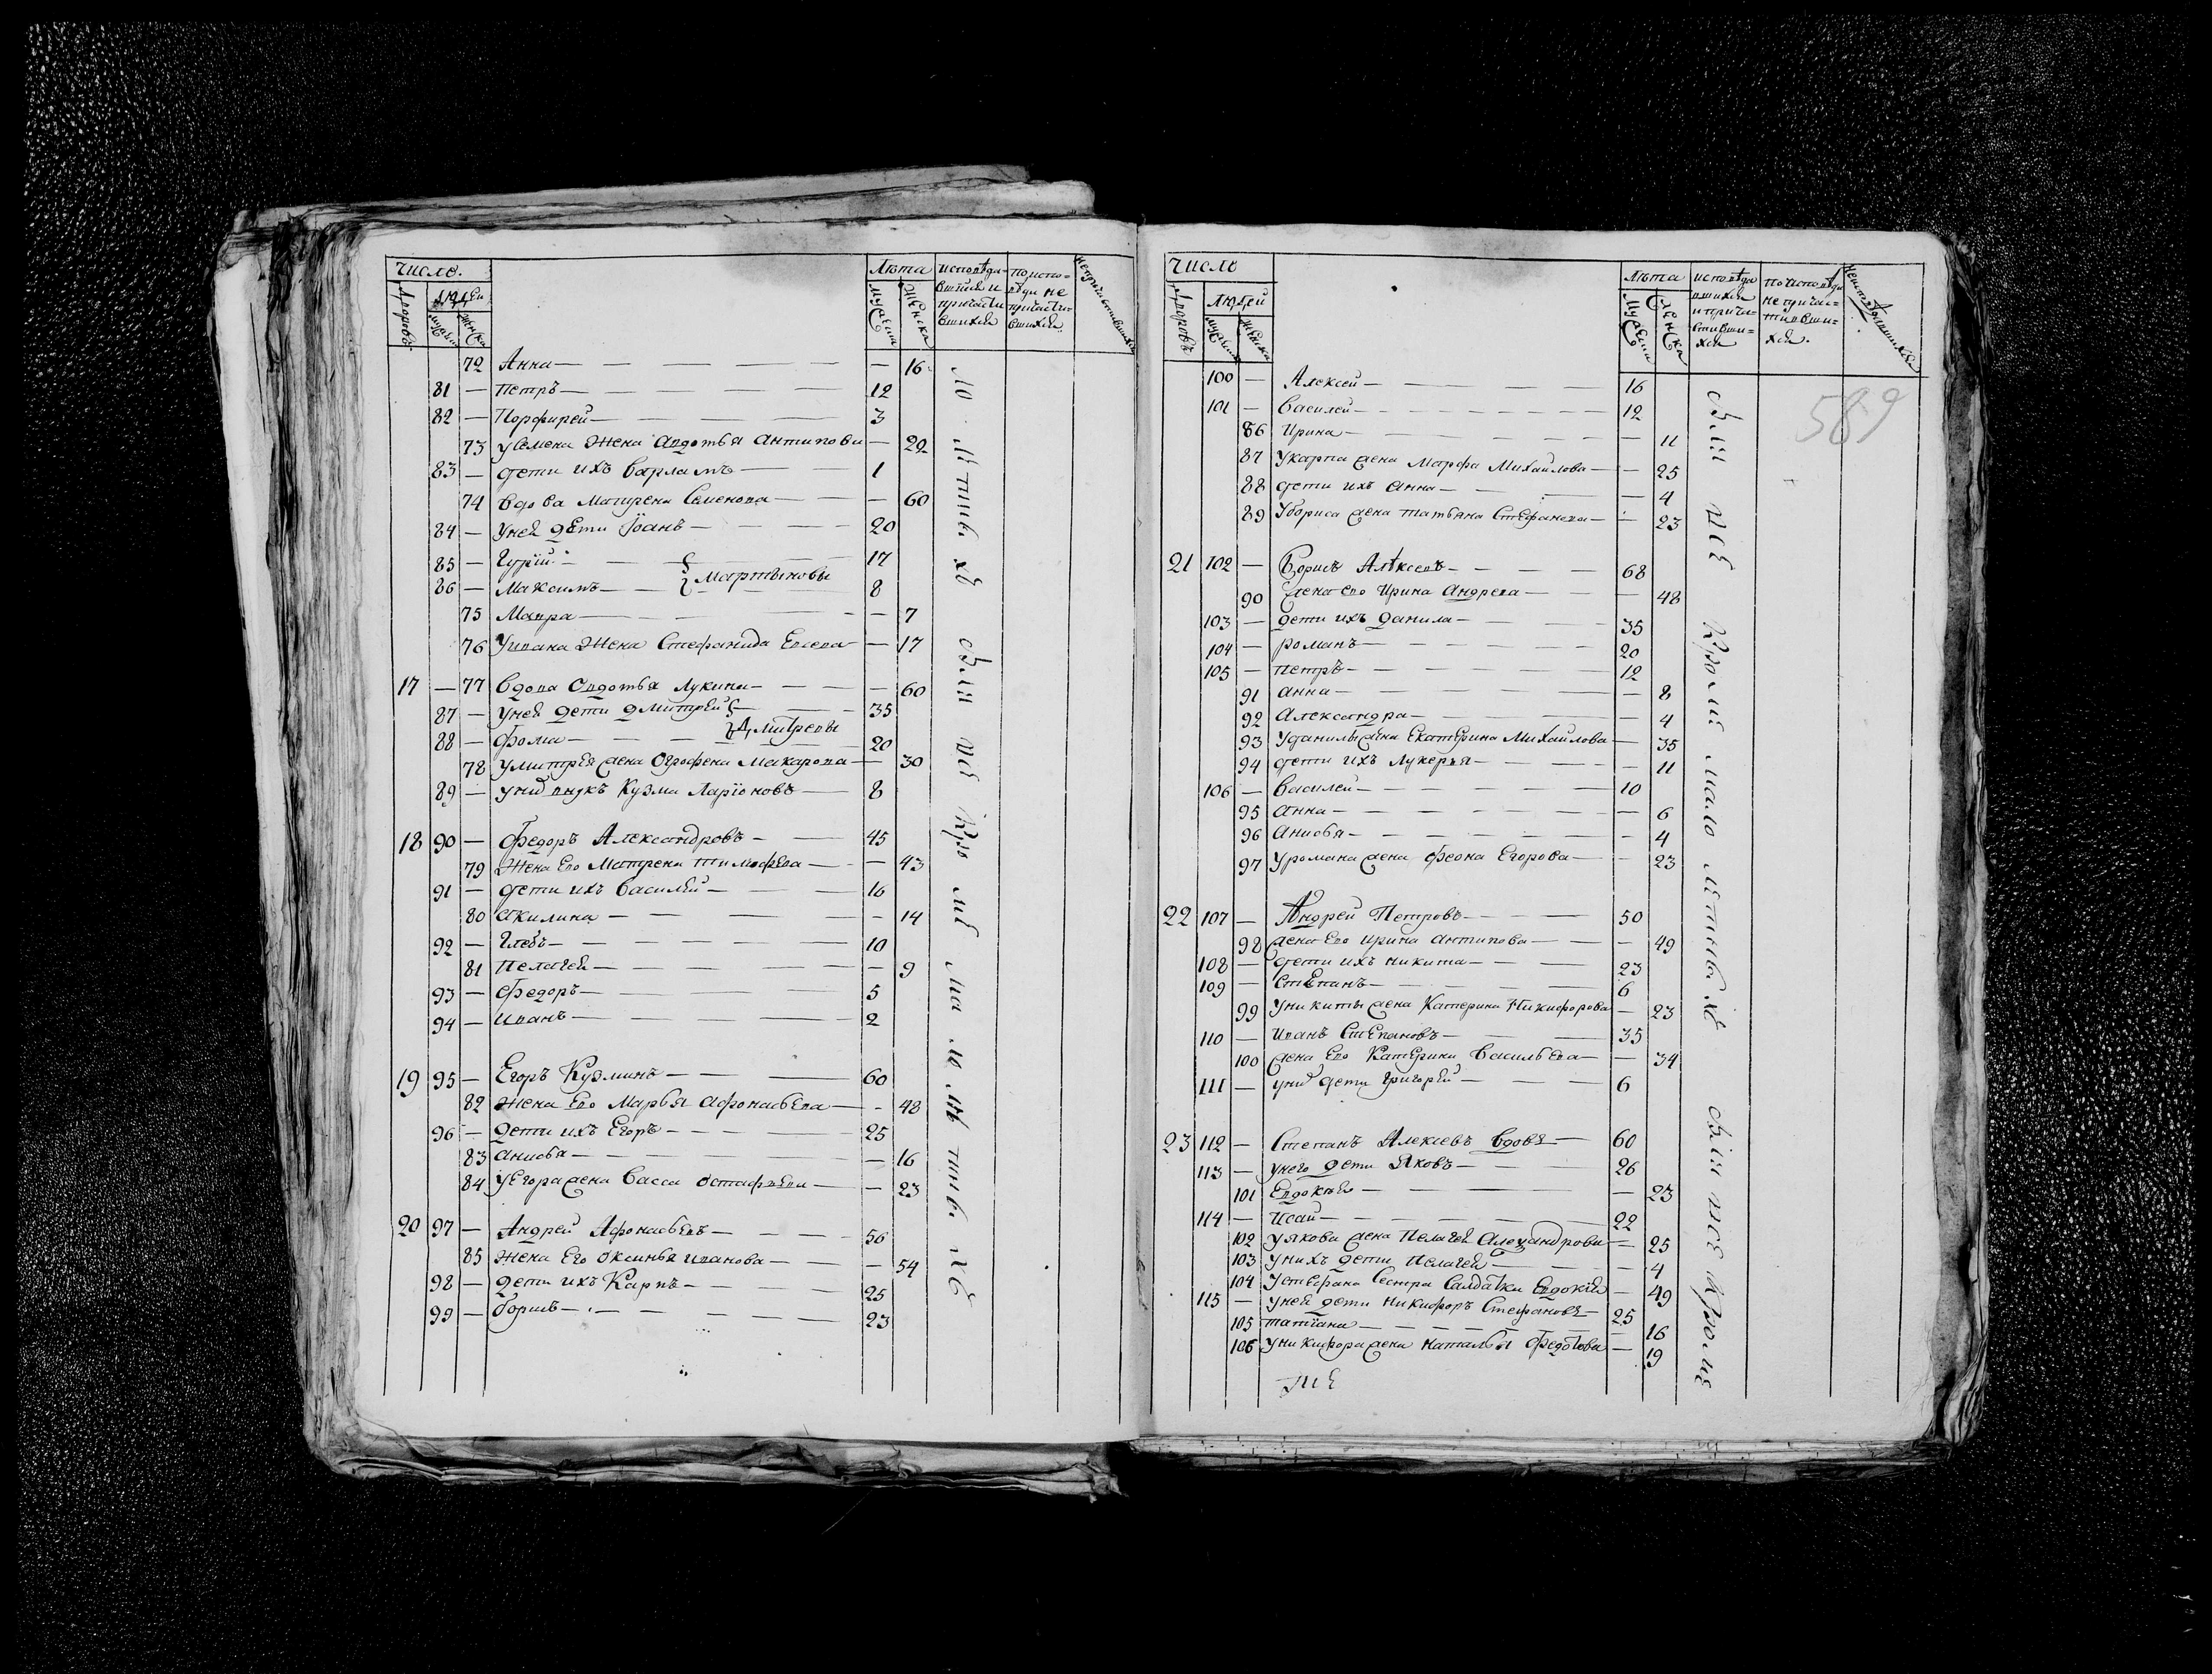 Число.
Дворовъ
Людей
мужеска
женска
Лѣта
мужеска
женска
исповѣдавшихся и причастившихся
по исповѣди не причастившихся
72 Анна — 16
81 — Петръ — 12
82 — Порфирей — 3
73 у Семена жена Авдотья Антипова — 22
83 — дети ихъ Варламъ — 1
74 вдова Матрена Семенова — 60
84 — у ней дети Іоанъ — 20
85 — Гурій — 17
86 — Максимъ — } Мартыновы 8
75 Мавра — 7
76 У ивана жена Стефанида Евсева — 17
17 — 77 вдова Овдотья Лукина — 60
87 — у ней дети Дмитрей — 35
88 — Фома — } Дмитревы 20
78 у митрея жена Огрофена Макарова — 30
89 — у ниъ внукъ Кузма Ларіоновъ — 8
18 90 — Федоръ Александровъ — 45
79 жена Ево Матрена тимофева — 43
91 — дети ихъ Василей — 16
80 Акилина — 14
92 — Глебъ — 10
81 Пелагея — 9
93 — Федоръ — 5
94 — Иванъ — 2
19 95 — Егоръ Кузминъ — 60
82 жена Ево Марья Афонасьева — 48
96 — дети ихъ Егоръ — 25
83 анисья — 16
84 у Егора жена Васса Остафьева — 23
20 97 — Андрей Афонасьевъ — 56
85 жена Его Оксинья иванова — 54
98 — дети ихъ Карпъ — 25
99 — борисъ — 23
ло лѣтныхъ
были всѣ кромѣ малолѣтныхъ
Число
Дворовъ
Людей
мужеска
женска
Лѣта
мужеска
женска
исповѣдавшихся и причастившихся
по исповѣди не причастившихся
589
100 — Алексей — 16
101 — Василей — 12
86 Ирина — 11
87 У карпа жена Марфа Михайлова — 25
88 дети ихъ анна — 4
89 У бориса жена татьяна Стефанова — 23
21 102 — Борисъ Алексеевъ — 68
90 жена ево Ирина Андрева — 48
103 — дети ихъ Данила — 35
104 — романъ — 20
105 — петръ — 12
91 анна — 8
92 Александра — 4
93 У данилы жена Екатерина Михайлова — 35
94 дети ихъ Лукерья — 11
106 — Василей — 10
95 анна — 6
96 Анисья — 4
97 У романа жена Феона Егорова — 23
22 107 — Андрей Петровъ — 50
98 жена Ево Ирина антипова — 49
108 — дети ихъ никита — 23
109 — Степанъ — 6
99 У никиты жена Катерина Никифорова — 23
110 — Иванъ Степановъ — 35
100 жена Ево Катерина Васильева — 34
111 — у ниъ дети Григорей — 6
23 112 — Степанъ Алексевъ вдовъ — 60
113 — у него дети Яковъ — 26
101 Евдокея — 23
114 — Исаи — 22
102 У якова жена Пелагея Алеѯандрова — 25
103 у нихъ дети Пелагея — 4
104 У стефана сестра Салдатка Евдокія — 49
115 — у ней дети Никифоръ Стефановъ — 25
105 татіана — 16
106 У никифора жена Наталья Федотова — 19
были всѣ кромѣ мало летныхъ были все кроме